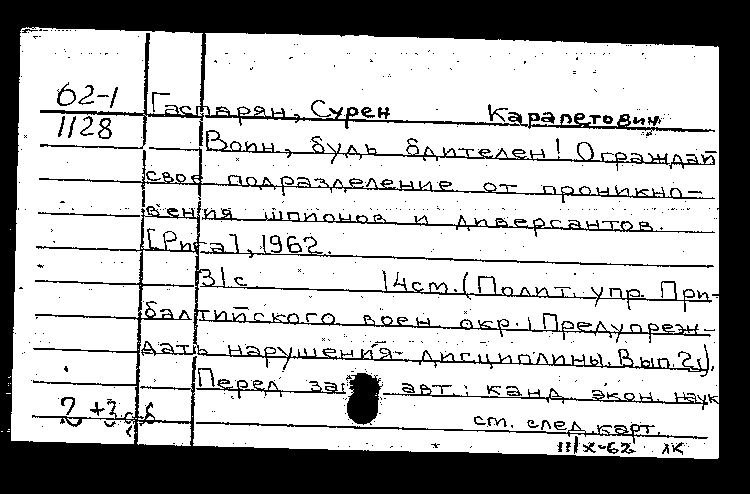 62-1 Гаспарян, Сурен Карапетович
1128
Воин, будь бдителен! Ограждай
свое подразделение от проникно-
вения шпионов и диверсантов.
[Рига], 1962.
31с 14см. (Полит. упр. При-
балтийского воен окр. Предупреж-
дать нарушения дисциплины. Вып. 2).
Перед заг авт.: канд экон. наук
см. след. карт.